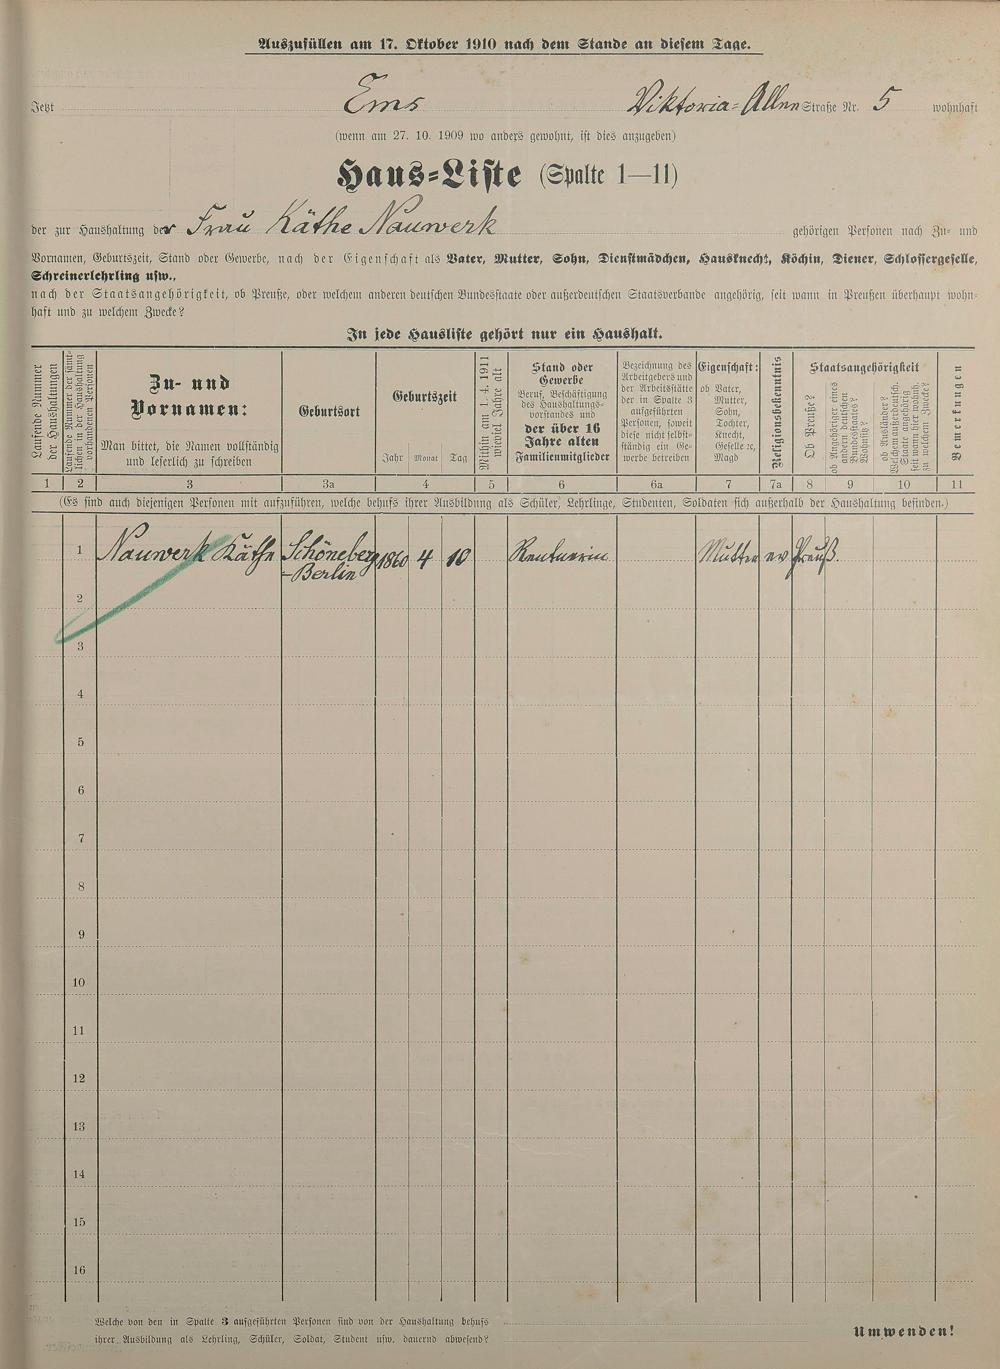 Auszufüllen am 17. Oktober 1910 nach dem Stande an diesem Tage.
Jetzt Ems Viktoria-Allee Straße Nr. 5 wohnhaft
(wenn am 27. 10. 1909 wo anders gewohnt, ist dies anzugeben)
Haus-Liste (Spalte 1—11)
der zur Haushaltung der Frau Käthe Nauwerk gehörigen Personen nach Zu- und
Vornamen, Geburtszeit, Stand oder Gewerbe, nach der Eigenschaft als Vater, Mutter, Sohn, Dienstmädchen, Hausknecht, Köchin, Diener, Schlossergeselle,
Schreinerlehrling usw.,
nach der Staatsangehörigkeit, ob Preuße, oder welchem anderen deutschen Bundesstaate oder außerdeutschen Staatsverbande angehörig, seit wann in Preußen überhaupt wohn-
haft und zu welchem Zwecke?
In jede Hausliste gehört nur ein Haushalt.
Laufende Nummer
der Haushaltungen
Laufende Nummer der sämt-
lichen in der Haushaltung
vorhandenen Personen
Zu- und
Vornamen:
Man bittet, die Namen vollständig
und leserlich zu schreiben
Geburtsort
Geburtszeit
Jahr Monat Tag
Mithin am 1. 4. 1911
wieviel Jahre alt
Stand oder
Gewerbe
Beruf, Beschäftigung
des Haushaltungs-
vorstandes und
der über 16
Jahre alten
Familienmitglieder
Bezeichnung des
Arbeitgebers und
der Arbeitsstätte
der in Spalte 3
aufgeführten
Personen, soweit
diese nicht selbst-
ständig ein Ge-
werbe betreiben
Eigenschaft:
ob Vater,
Mutter,
Sohn,
Tochter,
Knecht,
Geselle ꝛc,
Magd
Religionsbekenntnis
Staatsangehörigkeit
Ob Preuße?
ob Angehöriger eines
andern deutschen
Bundesstaates?
Wohnsitz?
ob Ausländer?
Welchem außerdeutsch.
Staate angehörig
seit wann hier wohnh.
zu welchem Zwecke?
Bemerkungen
1 2 3 3a 4 5 6 6a 7 7a 8 9 10 11
(Es sind auch diejenigen Personen mit aufzuführen, welche behufs ihrer Ausbildung als Schüler, Lehrlinge, Studenten, Soldaten sich außerhalb der Haushaltung befinden.)
1 Nauwerk Käthe Schöneberg 1860 4 10 Rentnerin Mutter ev Preuß.
-Berlin
2
3
4
5
6
7
8
9
10
11
12
13
14
15
16
Welche von den in Spalte 3 aufgeführten Personen sind von der Haushaltung behufs
ihrer Ausbildung als Lehrling, Schüler, Soldat, Student usw. dauernd abwesend?
Umwenden!